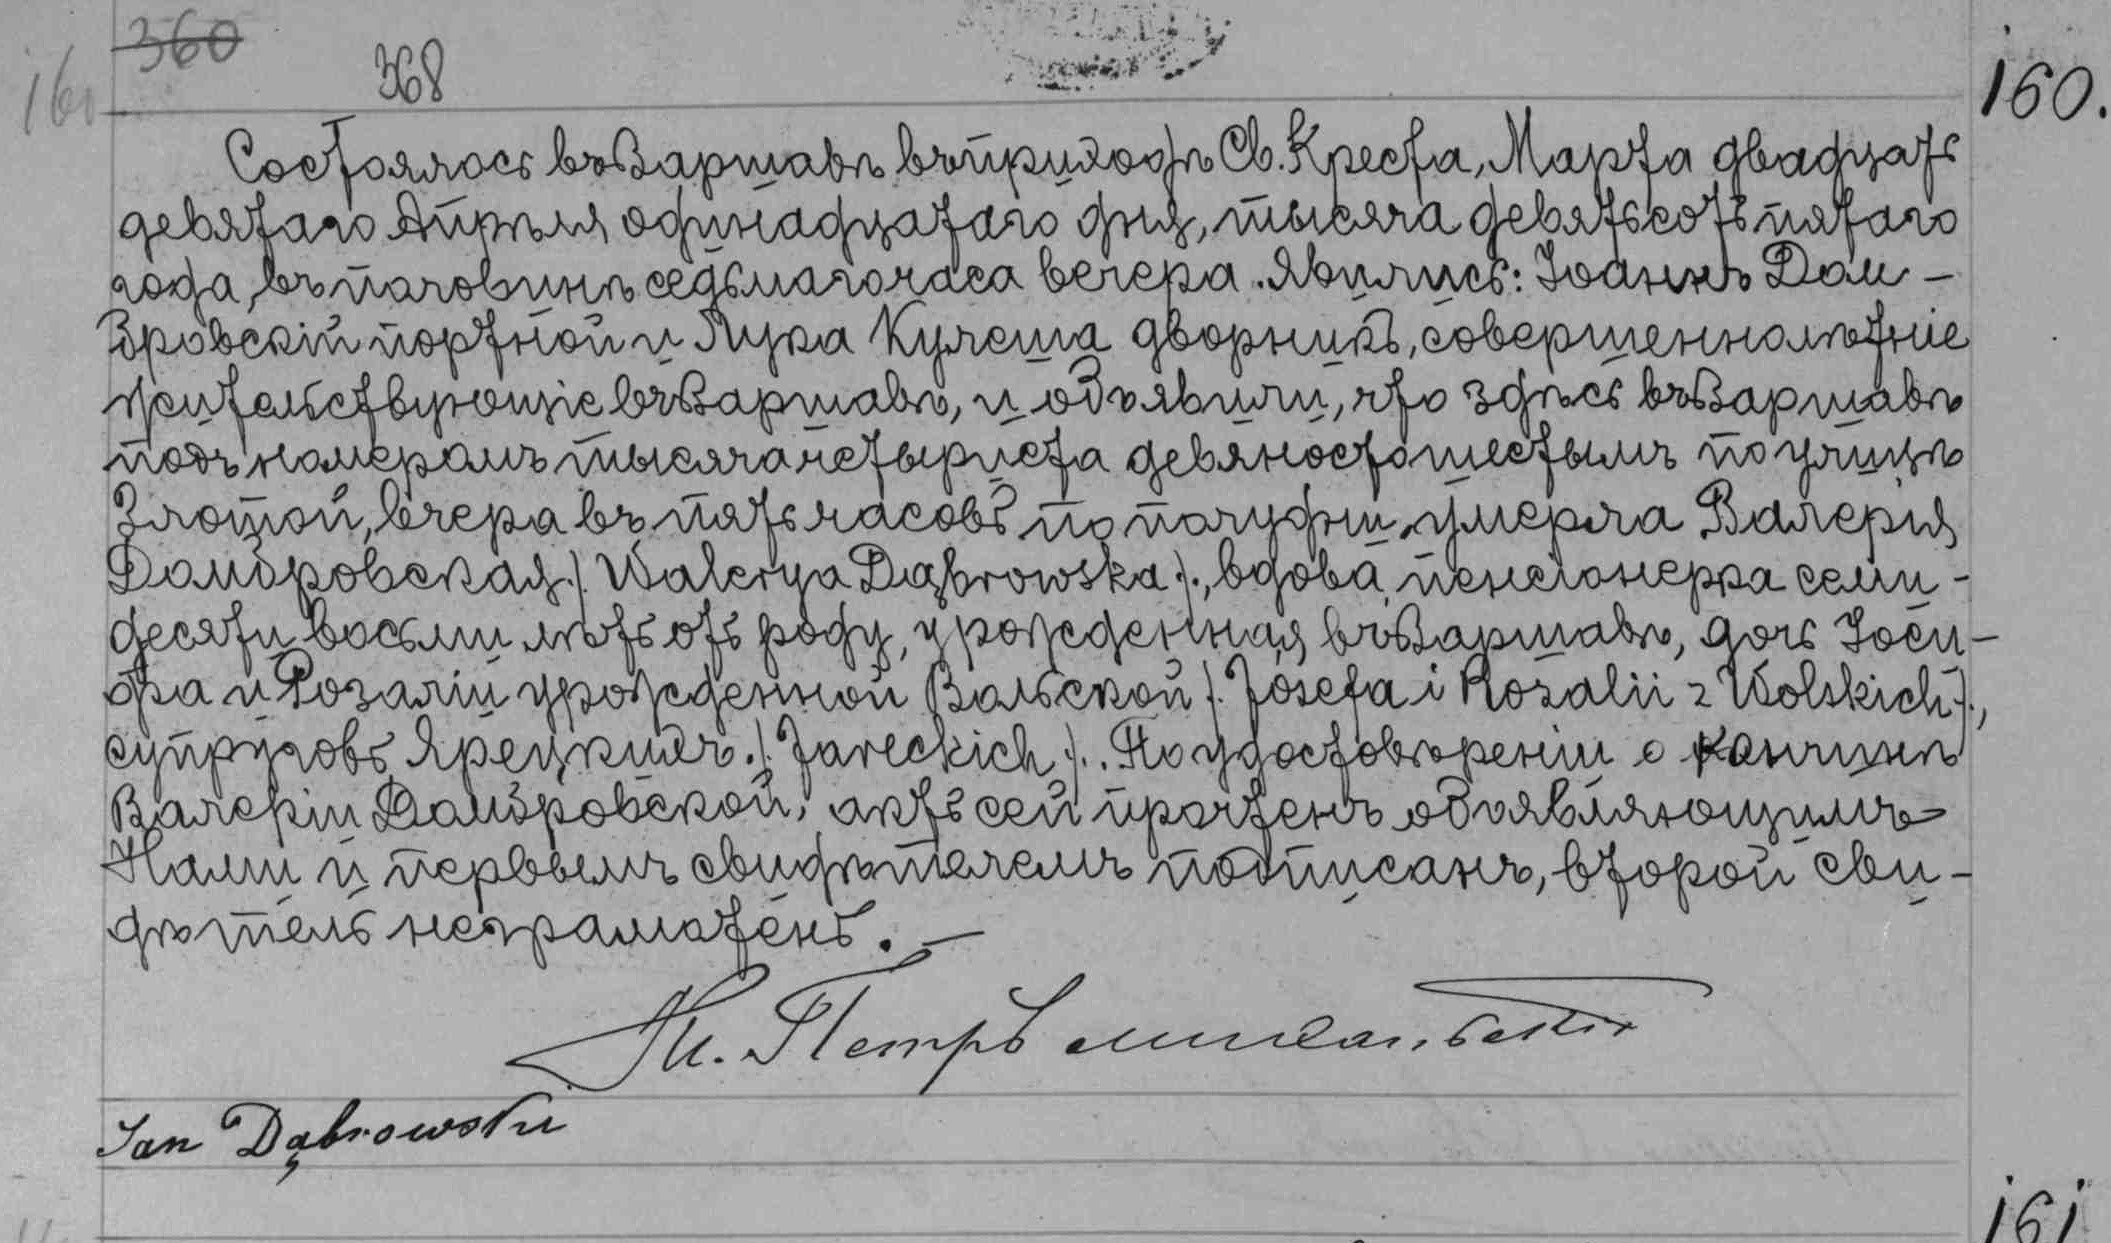 360
368
160
160.
Состоялось въ Варшавѣ въ приходѣ Св. Креста, Марта двадцать
девятаго Апрѣля одинадцатаго дня, тысяча девятьсотъ пятаго
года, въ половинѣ седьмаго часа вечера. Явились: Іоаннъ Дом-
бровскій портной и Лука Кулеша дворникъ, совершеннолѣтніе
жительствующіе въ Варшавѣ, и объявили, что здѣсь въ Варшавѣ
подъ номеромъ тысяча четыриста девяносто шестымъ по улицѣ
Злотой, вчера въ пять часовъ по полудни, умерла Валерія
Домбровская /. Walerya Dąbrowska ./, вдова, пенсіонерка семи-
десяти восьми лѣтъ отъ роду, урожденная въ Варшавѣ, дочь Іоси-
фа и Розаліи урожденной Вольской /. Józefa i Rozalii z Wolskich ./,
супруговъ Ярецкихъ. /. Jareckich ./. По удостовѣреніи о кончинѣ
Валеріи Домбровской, актъ сей прочтенъ объявляющимъ
Нами и первымъ свидѣтелемъ подписанъ, второй сви-
дѣтель неграмотенъ. —
Петръ
Jan Dąbrowski
161